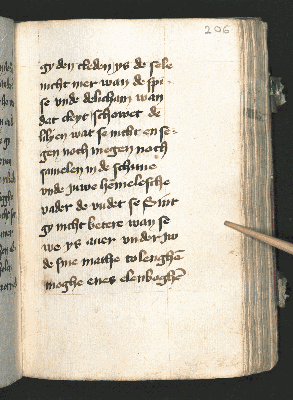 206
gy den cleden ys de sele
nicht mer wan de spi-
se vnde de licham wan
dat cleyt schowet de
lilyen wat se nicht en se-
gen noch megen noch
samelen in de schune
vnde juwe hemelesche
vader de vudet se Sint
gy nicht betere wan se
we ys auer vnder iw
de sine mathe to lenghē
moghe enes elenboghē